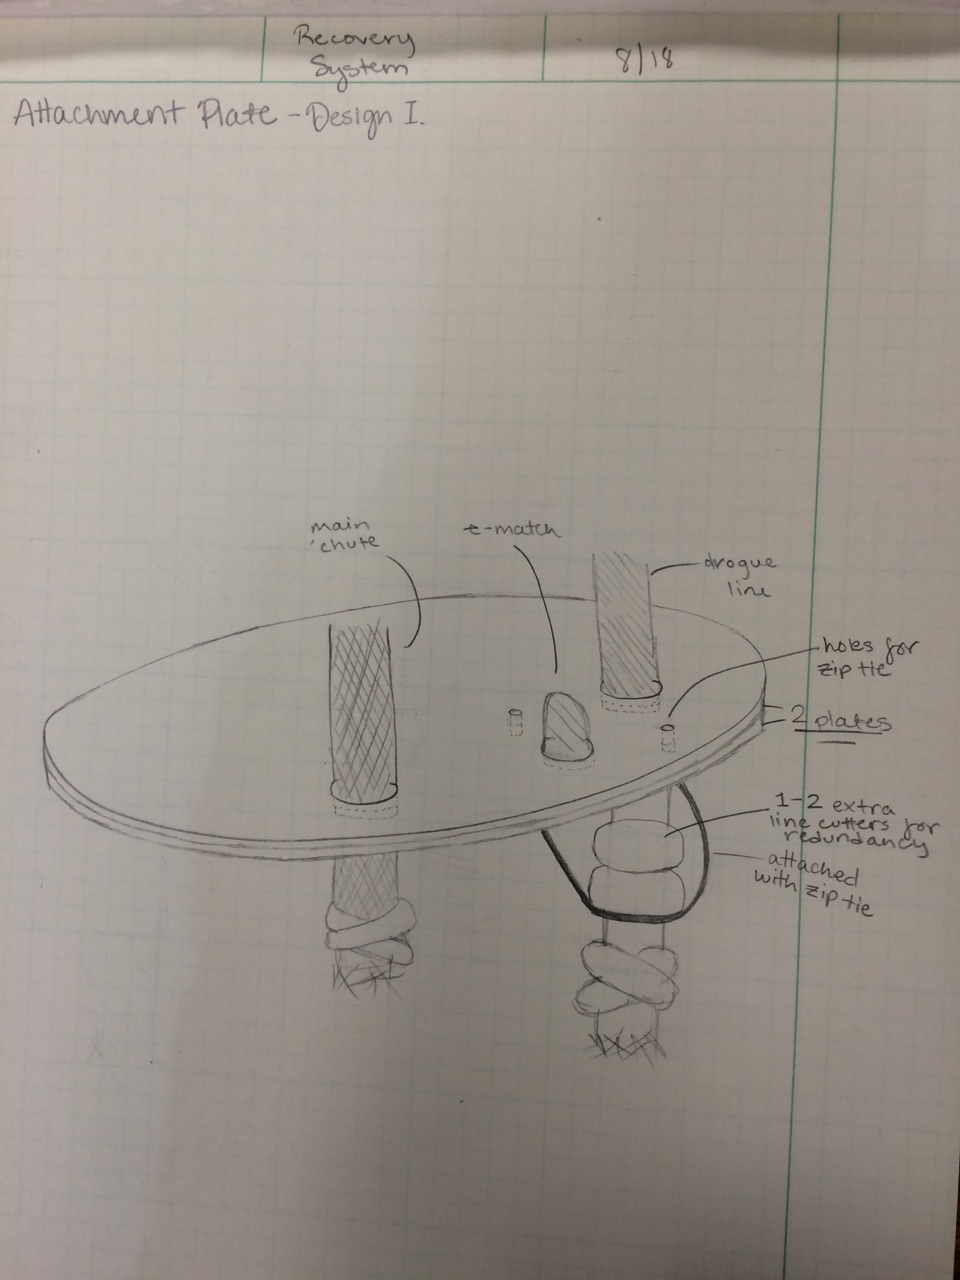 Recovery
System
8/18
Attachment Plate - Design I.
main
'chute
e-match
drogue
line
holes for
zip tie
2 plates
1-2 extra
line cutters for
redundancy
attached
with zip tie